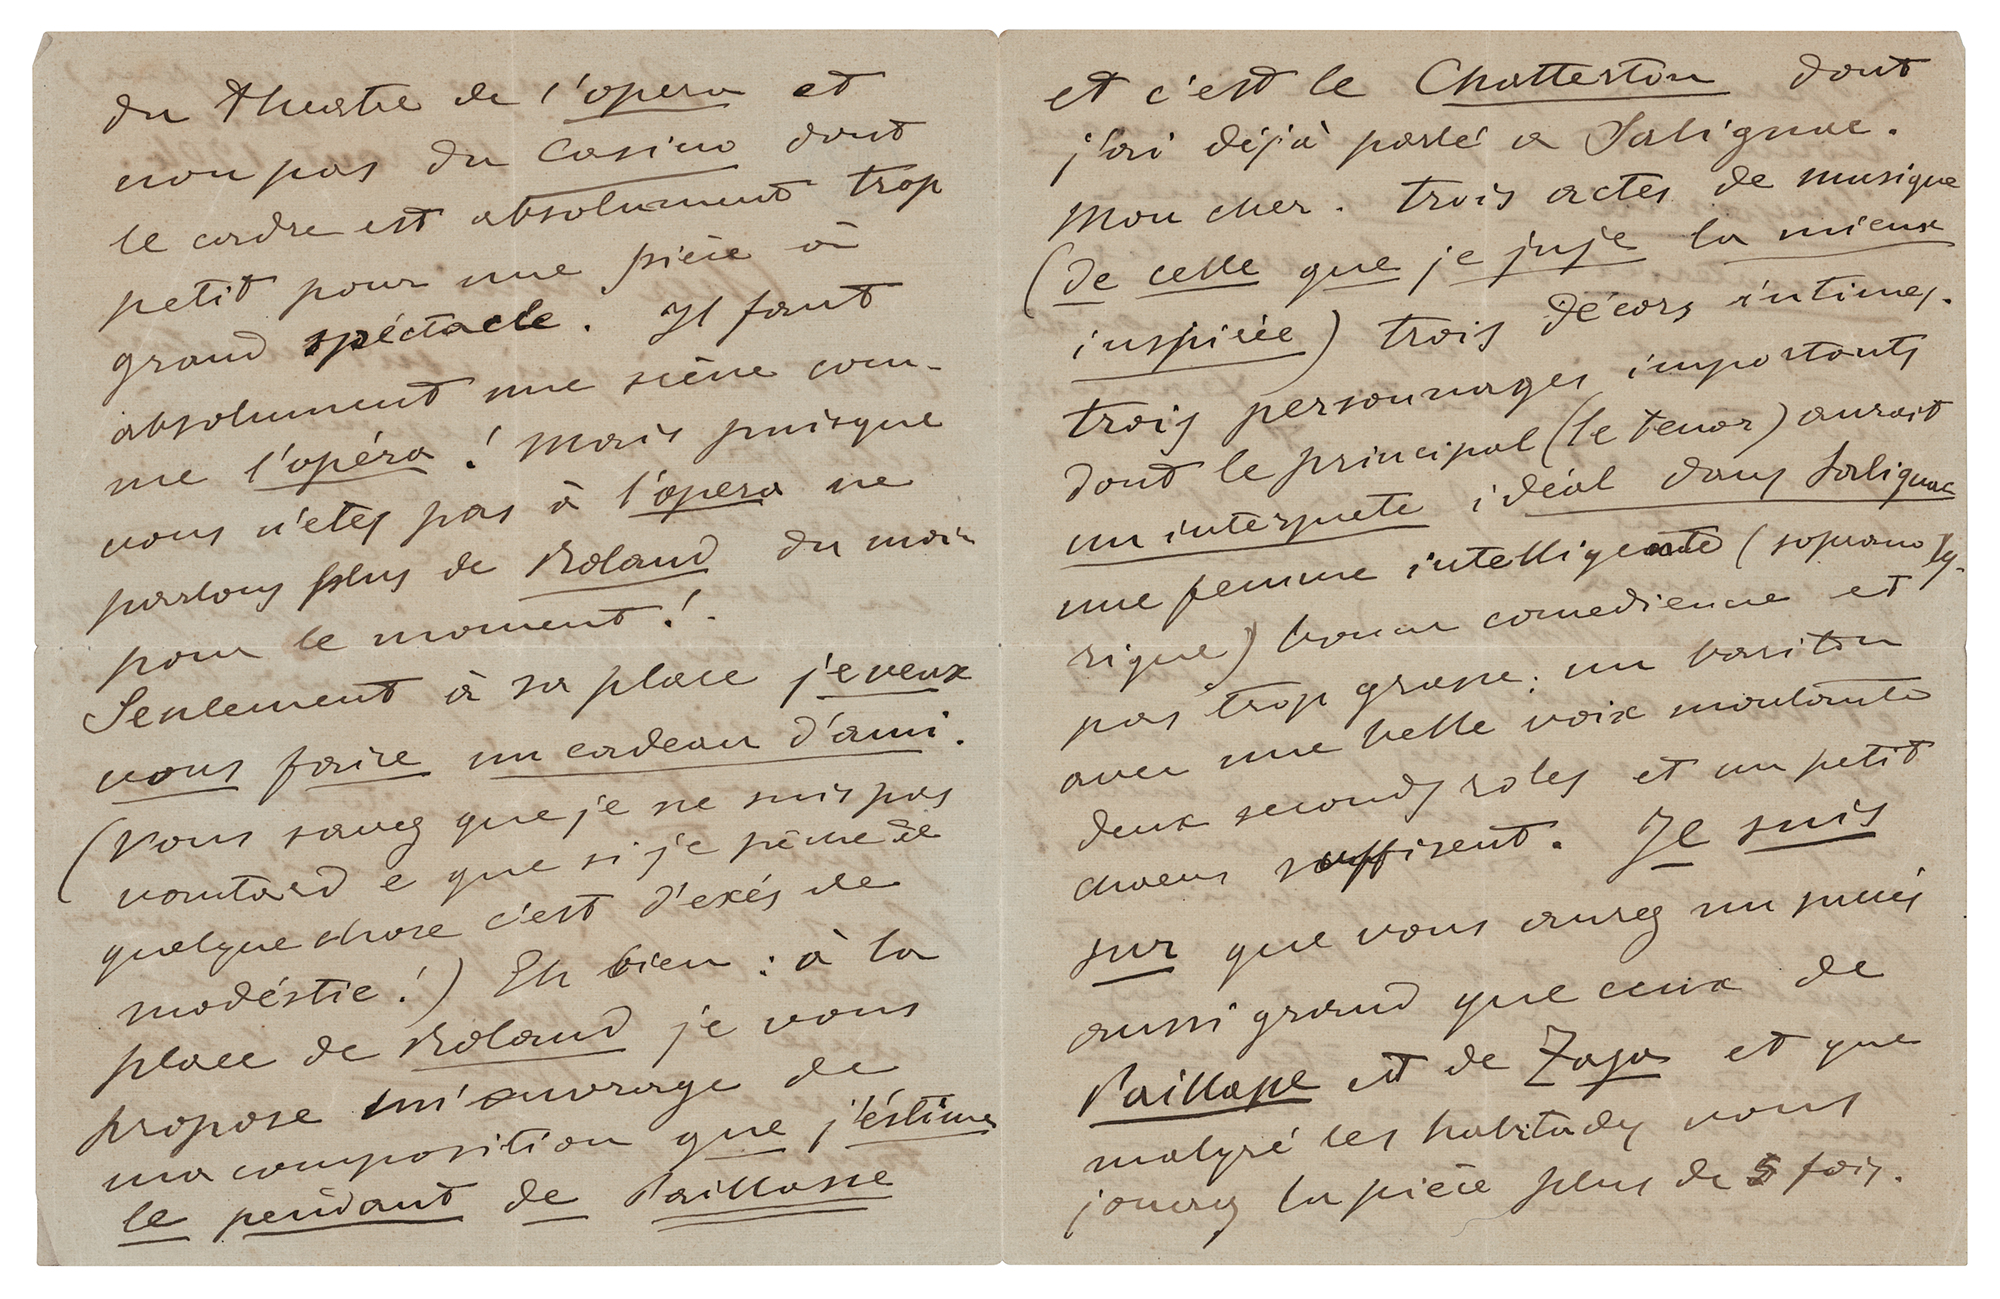 du theatre de l'opera et
non pas du Casino dont
le cadre est absolument trop
petit pour une pièce à
grand spéctacle. Il faut
absolument une scène com-
me l'opéra! Mais puisque
vous n'etes pas à l'opera ne
parlons plus de Roland du moin
pour le moment!.
Seulement à sa place je veux
vous faire un cadeau d'ami.
(Vous savez que je ne suis pas
vantard e que si je pèche de
quelque chose c'est d'exés de
modéstie!) Eh bien: à la
place de Roland je vous
propose un'ouvrage de
ma composition que j'éstime
le pendant de Paillasse
et c'est le Chatterton dont
j'ai déjà parlé a Salignac.
Mon cher. trois actes de musique
(de celle que je juje la mieux
inspirée) trois décors intimes.
trois personnages importants
dont le principal (le tenor) aurait
un interprete idéal dans Salignac
une femme intelligente (soprano ly-
rique) bonne comedienne et
pas trop grasse; un bariton
avec une belle voix montante
deux seconds roles et un petit
choeur suffisent. Je suis
sur que vous aurez un succés
aussi grand que ceux de
Paillasse et de Zaza et que
malgré les habitudes vous
jouerez la pièce plus de 5 fois.